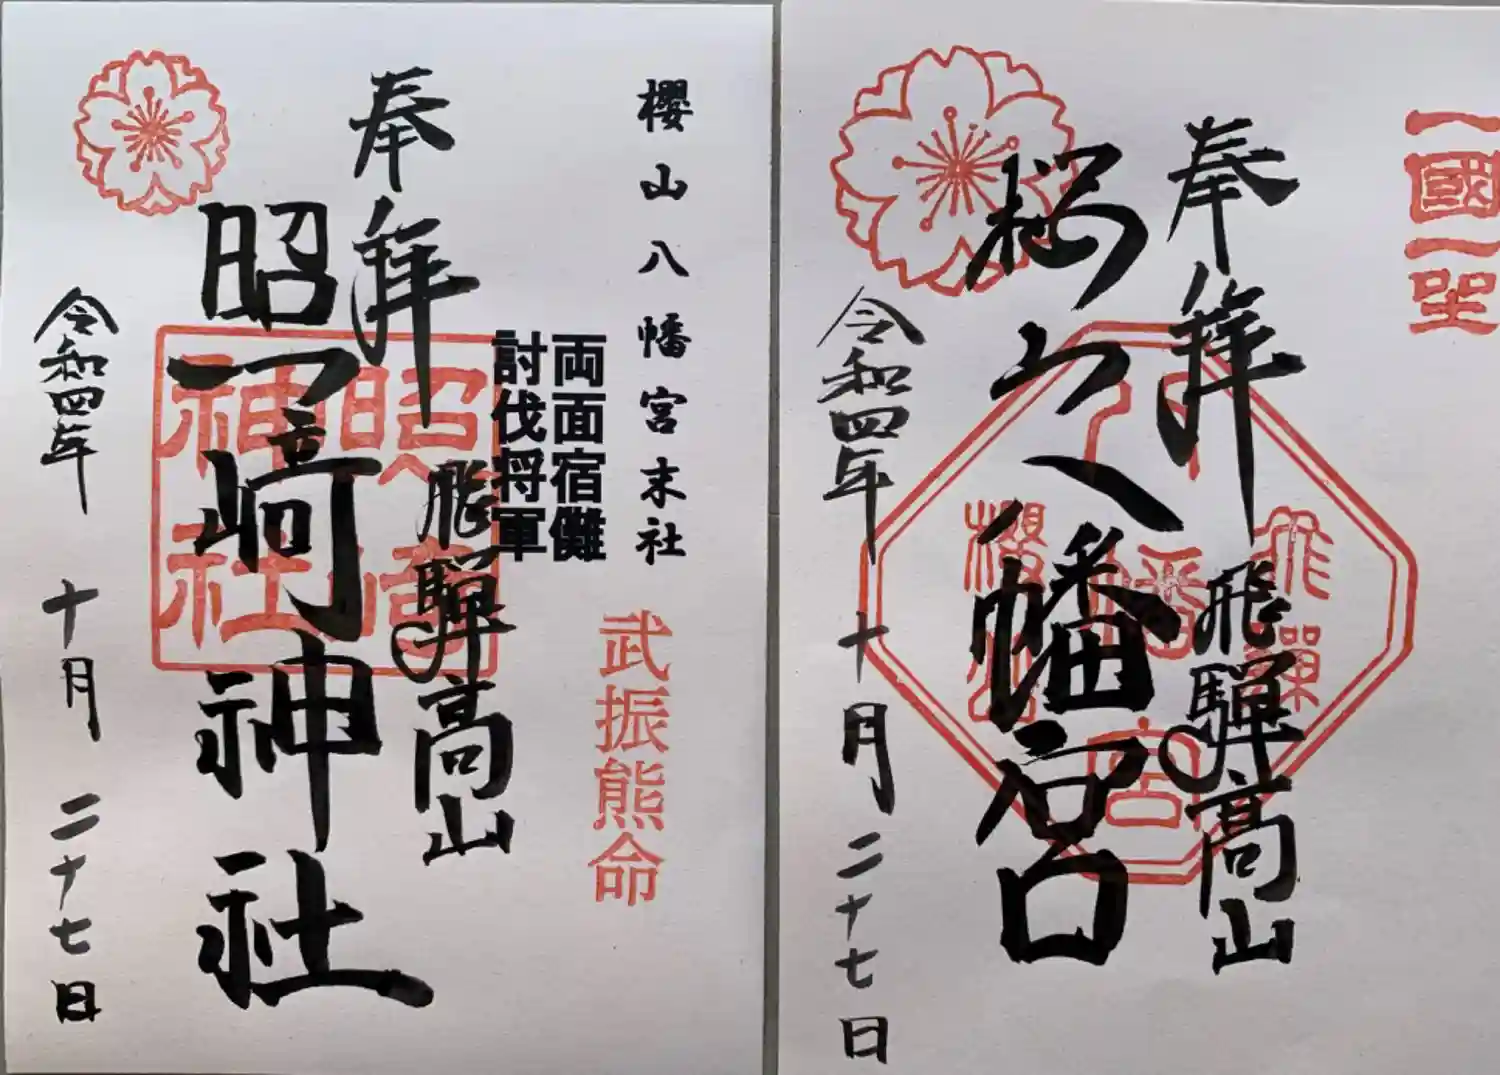 櫻山八幡宮末社
両面宿儺
討伐将軍
武振熊命
奉拝
飛騨高山
照崎神社
照崎
神社
令和四年
十月
二十七日
一國一
奉拝
飛騨高山
桜山八幡宮
飛騨
八幡宮
櫻山
令和四年
十月
二十七日